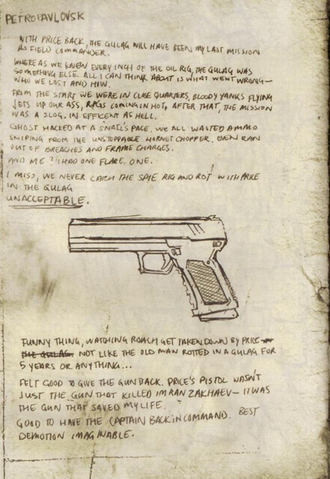 PETROPAVLOVSK
WITH PRICE BACK, THE GULAG WILL HAVE BEEN MY LAST MISSION
AS FIELD COMMANDER.
WHERE AS WE KNEW EVERY INCH OF THE OIL RIG, THE GULAG WAS
SOMETHING ELSE. ALL I CAN THINK ABOUT IS WHAT WENT WRONG—
WHO WE LOST AND HOW.
FROM THE START WE WERE IN CLOSE QUARTERS, BLOODY YANKS FLYING
JETS UP OUR ASS, RPGS COMING IN HOT, AFTER THAT, THE MISSION
WAS A SLOG. INEFFICENT AS HELL.
GHOST HACKED AT A SNAIL'S PACE, WE ALL WASTED AMMO
SNIPING FROM THE UNSTOPPABLE HORNET CHOPPER, EVEN RAN
OUT OF BREACHES AND FRAME CHARGES.
AND ME I HAD ONE FLARE. ONE.
I MISS, WE NEVER CATCH THE SPIE RIG AND ROT WITH PRICE
IN THE GULAG
UNACCEPTABLE.
FUNNY THING, WATCHING ROACH GET TAKEN DOWN BY PRICE
THE GULAG. NOT LIKE THE OLD MAN ROTTED IN A GULAG FOR
5 YEARS OR ANYTHING...
FELT GOOD TO GIVE THE GUN BACK. PRICE'S PISTOL WASN'T
JUST THE GUN THAT KILLED IMRAN ZAKHAEV— IT WAS
THE GUN THAT SAVED MY LIFE.
GOOD TO HAVE THE CAPTAIN BACK IN COMMAND. BEST
DEMOTION IMAGINABLE.